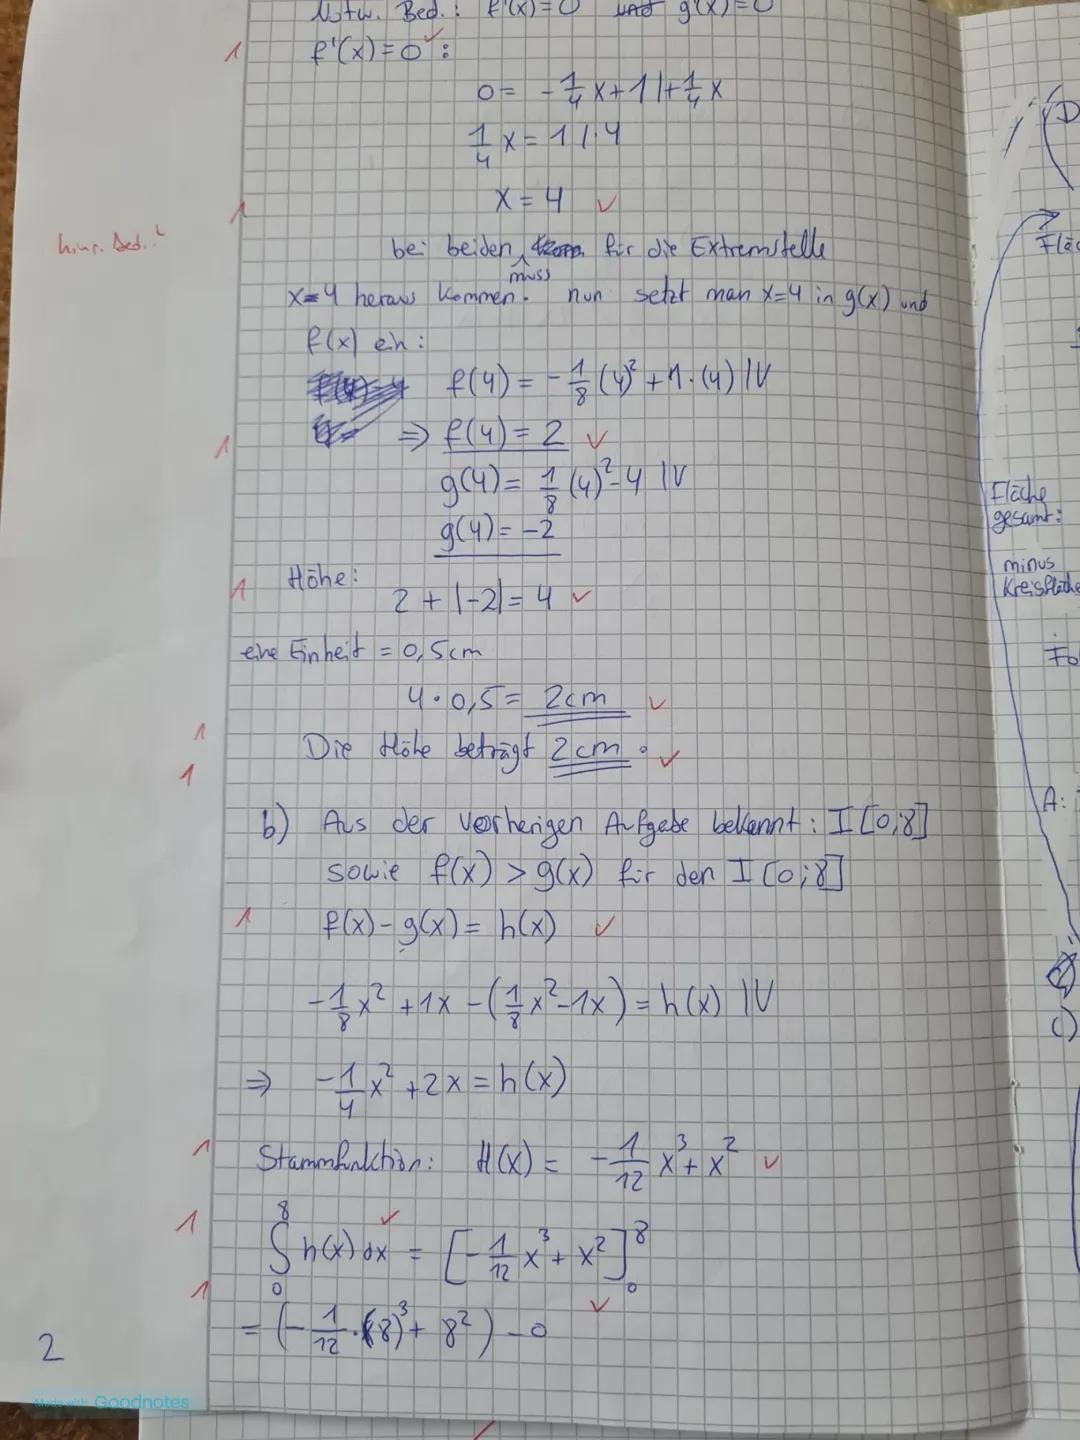 Notw. Bed.: f'(x)=0 und g'(x)=0
1 f'(x)=0 ✓:
0 = -1/4 x + 1 | + 1/4 x
1/4 x = 1 | · 4
1 x = 4 ✓
hinr. Bed.?
bei beiden muss für die Extremstelle
x=4 heraus kommen. nun setzt man x=4 in g(x) und
f(x) ein:
f(4) = -1/8 (4)² + 1·(4) | V
1 ⇒ f(4) = 2 ✓
g(4) = 1/8 (4)² - 4 | V
g(4) = -2
1 Höhe:
2 + |-2| = 4 ✓
eine Einheit = 0,5cm
4 · 0,5 = 2cm ✓
1
Die Höhe beträgt 2cm. ✓
1
b) Aus der vorherigen Aufgabe bekannt: I [0;8]
sowie f(x) > g(x) für den I [0;8]
1 f(x) - g(x) = h(x) ✓
-1/8 x² + 1x - (1/8 x² - 1x) = h(x) | V
⇒ -1/4 x² + 2x = h(x)
1 Stammfunktion: H(x) = -1/12 x³ + x² ✓
1 ∫₀⁸ h(x) dx ✓ = [-1/12 x³ + x²]₀⁸
1 = (-1/12 · (8)³ + 8²) - 0 ✓
2
Made with Goodnotes
Fläche
gesamt:
minus
Kreisfläche
A:
c)